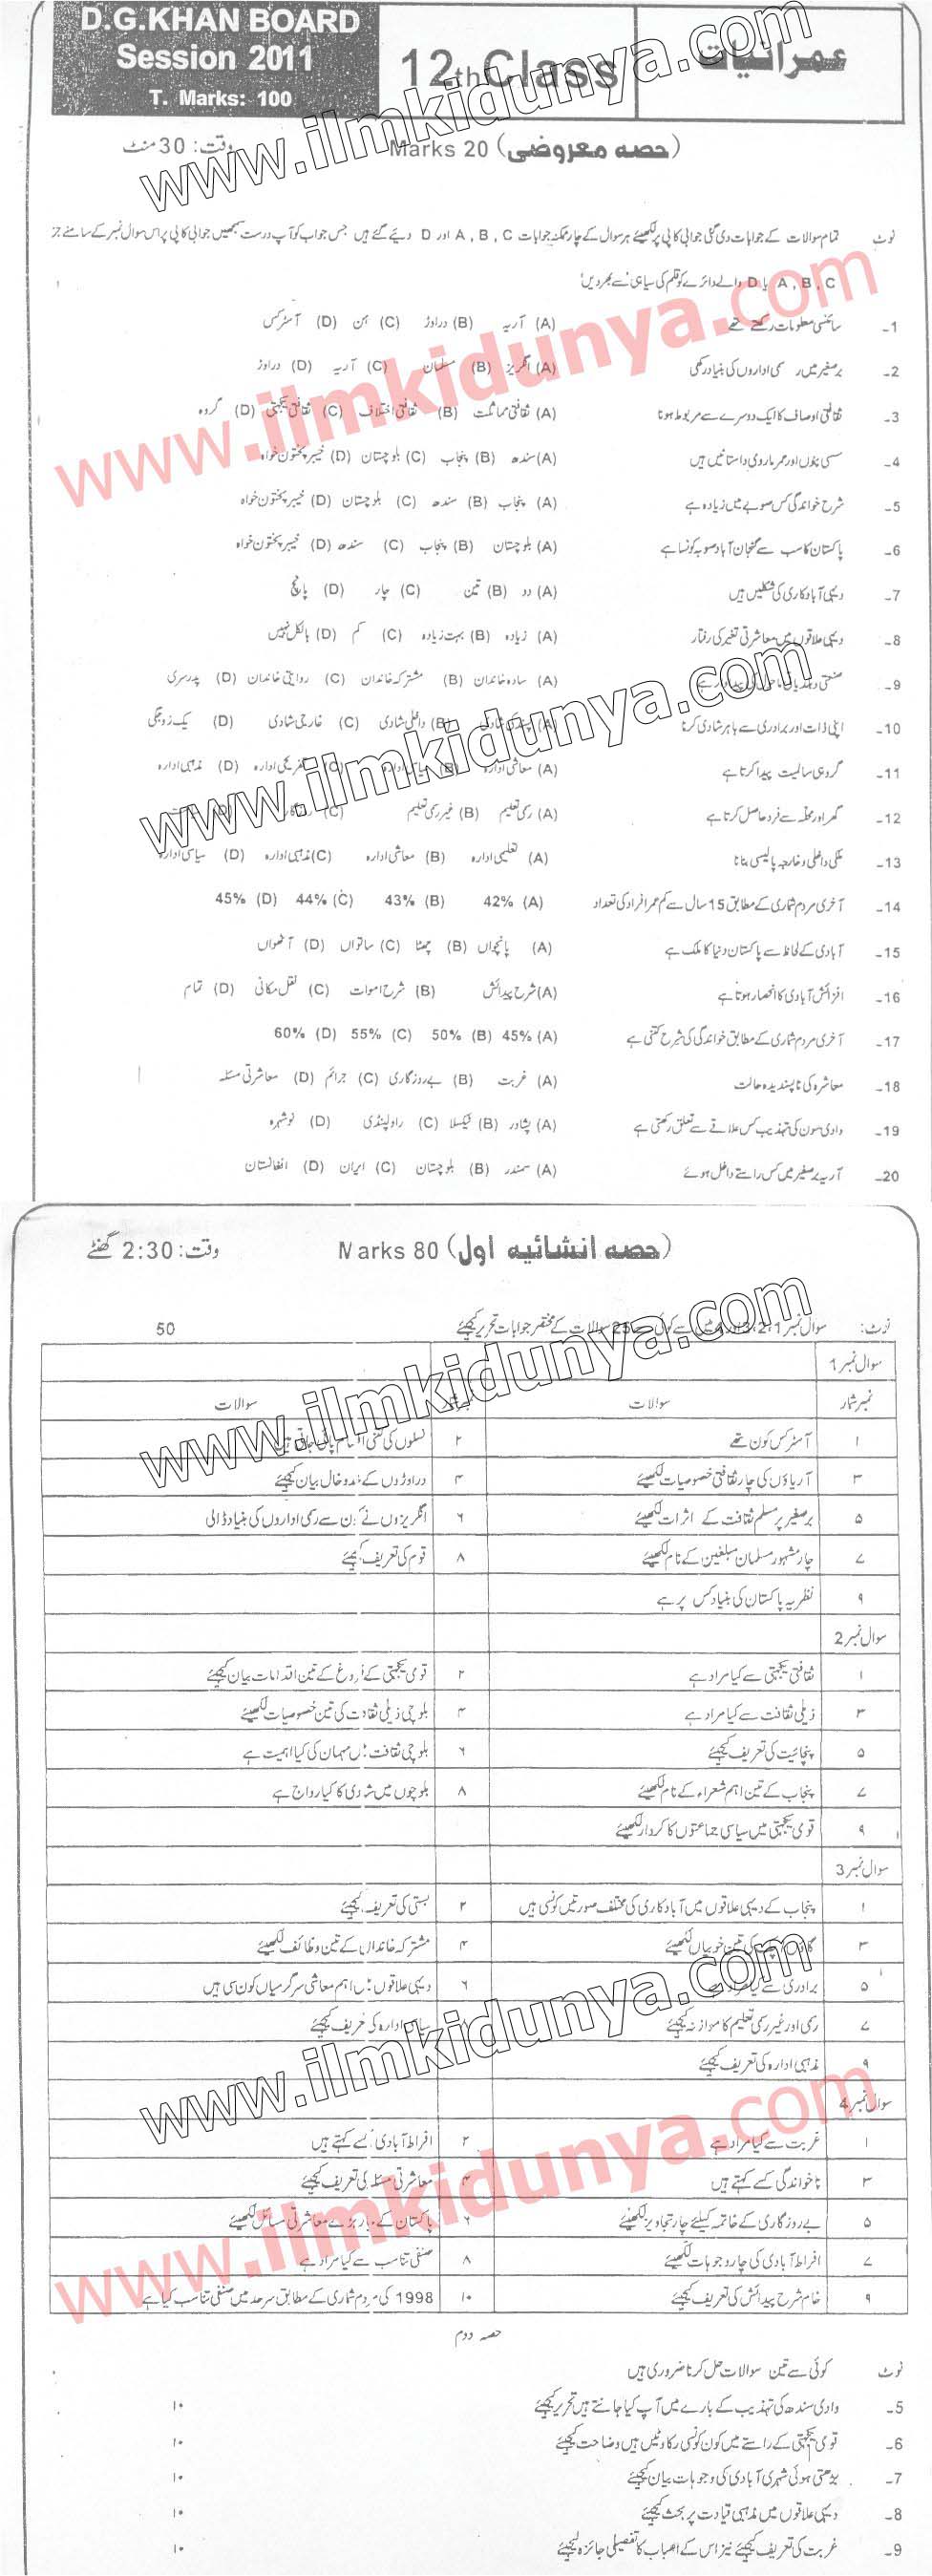 D.G.KHAN BOARD
Session 2011
T. Marks: 100
12th Class
عمرانیات
(حصہ معروضی) Marks 20
وقت: 30 منٹ
نوٹ تمام سوالات کے جوابات دی گئی جوابی کاپی پر لکھیئے ہر سوال کے چار ممکنہ جوابات A , B , C اور D دیئے گئے ہیں جس جواب کو آپ درست سمجھیں جوابی کاپی پر اس سوال نمبر کے سامنے
A , B , C یا D والے دائرے کو قلم کی سیاہی سے بھر دیں
1- سائنسی معلومات رکھتے تھے (A) آریہ (B) دراوڑ (C) ہن (D) آسٹرکس
2- برصغیر میں رسمی اداروں کی بنیاد رکھی (A) انگریز (B) مسلمان (C) آریہ (D) دراوڑ
3- ثقافتی اوصاف کا ایک دوسرے سے مربوط ہونا (A) ثقافتی مماثلت (B) ثقافتی اختلاف (C) ثقافتی یکجہتی (D) گروہ
4- سسی پنوں اور عمر ماروی داستانیں ہیں (A) سندھ (B) پنجاب (C) بلوچستان (D) خیبر پختون خواہ
5- شرح خواندگی کس صوبے میں زیادہ ہے (A) پنجاب (B) سندھ (C) بلوچستان (D) خیبر پختون خواہ
6- پاکستان کا سب سے گنجان آباد صوبہ کونسا ہے (A) بلوچستان (B) پنجاب (C) سندھ (D) خیبر پختون خواہ
7- دیہی آباد کاری کی شکلیں ہیں (A) دو (B) تین (C) چار (D) پانچ
8- دیہی علاقوں میں معاشرتی تغیر کی رفتار (A) زیادہ (B) بہت زیادہ (C) کم (D) بالکل نہیں
9- صنعتی و پیداوار ہے (A) سادہ خاندان (B) مشترکہ خاندان (C) روایتی خاندان (D) پدرسری
10- اپنی ذات اور برادری سے باہر شادی کرنا (A) پسند کی شادی (B) داخلی شادی (C) خارجی شادی (D) یک زوجگی
11- گروہی سالمیت پیدا کرتا ہے (A) معاشی ادارہ (B) سیاسی ادارہ (C) تفریحی ادارہ (D) مذہبی ادارہ
12- گھر اور محلہ سے فرد حاصل کرتا ہے (A) رسمی تعلیم (B) غیر رسمی تعلیم (C) (D)
13- ملکی داخلی و خارجہ پالیسی بنانا (A) تعلیمی ادارہ (B) معاشی ادارہ (C) مذہبی ادارہ (D) سیاسی ادارہ
14- آخری مردم شماری کے مطابق 15 سال سے کم عمر افراد کی تعداد (A) 42% (B) 43% (C) 44% (D) 45%
15- آبادی کے لحاظ سے پاکستان دنیا کا ملک ہے (A) پانچواں (B) چھٹا (C) ساتواں (D) آٹھواں
16- افزائش آبادی کا انحصار ہوتا ہے (A) شرح پیدائش (B) شرح اموات (C) نقل مکانی (D) تمام
17- آخری مردم شماری کے مطابق خواندگی کی شرح کتنی ہے (A) 45% (B) 50% (C) 55% (D) 60%
18- معاشرہ کی ناپسندیدہ حالت (A) غربت (B) بے روزگاری (C) جرائم (D) معاشرتی مسئلہ
19- وادی سون کی تہذیب کس علاقے سے تعلق رکھتی ہے (A) پشاور (B) ٹیکسلا (C) راولپنڈی (D) نوشہرہ
20- آریہ برصغیر میں کس راستے داخل ہوئے (A) سمندر (B) بلوچستان (C) ایران (D) افغانستان
(حصہ انشائیہ اول) Marks 80
وقت: 2:30 گھنٹے
نوٹ: سوال نمبر 1،2،3 اور 4 میں سے کوئی سے 25 سوالات کے مختصر جوابات تحریر کیجئے 50
سوال نمبر 1
نمبر شمار سوالات نمبر شمار سوالات
۱ آسٹرکس کون تھے ۲ نسلوں کی کتنی اقسام پائی جاتی ہیں
۳ آریاؤں کی چار ثقافتی خصوصیات لکھیئے ۴ دراوڑوں کے خدوخال بیان کیجئے
۵ برصغیر پر مسلم ثقافت کے اثرات لکھیئے ۶ انگریزوں نے کن سے رسمی اداروں کی بنیاد ڈالی
۷ چار مشہور مسلمان مبلغین کے نام لکھیئے ۸ قوم کی تعریف کیجئے
۹ نظریہ پاکستان کی بنیاد کس پر ہے
سوال نمبر 2
۱ ثقافتی یکجہتی سے کیا مراد ہے ۲ قومی یکجہتی کے فروغ کے تین اقدامات بیان کیجئے
۳ ذیلی ثقافت سے کیا مراد ہے ۴ بلوچی ذیلی ثقافت کی تین خصوصیات لکھیئے
۵ پنچائیت کی تعریف کیجئے ۶ بلوچی ثقافت میں مہمان کی کیا اہمیت ہے
۷ پنجاب کے تین اہم شعراء کے نام لکھیئے ۸ بلوچوں میں شادی کا کیا رواج ہے
۹ قومی یکجہتی میں سیاسی جماعتوں کا کردار لکھیئے
سوال نمبر 3
۱ پنجاب کے دیہی علاقوں میں آباد کاری کی مختلف صورتیں کونسی ہیں ۲ بستی کی تعریف کیجئے
۳ گاؤں کی تین خوبیاں لکھیئے ۴ مشترکہ خاندان کے تین وظائف لکھیئے
۵ برادری سے کیا مراد ہے ۶ دیہی علاقوں میں اہم معاشی سرگرمیاں کون سی ہیں
۷ رسمی اور غیر رسمی تعلیم کا موازنہ کیجئے ۸ سیاسی ادارہ کی تعریف کیجئے
۹ مذہبی ادارہ کی تعریف کیجئے
سوال نمبر 4
۱ غربت سے کیا مراد ہے ۲ افراط آبادی کسے کہتے ہیں
۳ ناخواندگی کسے کہتے ہیں ۴ معاشرتی مسئلہ کی تعریف کیجئے
۵ بے روزگاری کے خاتمہ کیلئے چار تجاویز لکھیئے ۶ پاکستان کے چار بڑے معاشرتی مسائل لکھیئے
۷ افراط آبادی کی چار وجوہات لکھیئے ۸ صنفی تناسب سے کیا مراد ہے
۹ خام شرح پیدائش کی تعریف کیجئے ۱۰ 1998 کی مردم شماری کے مطابق سرحد میں صنفی تناسب کیا ہے
حصہ دوم
نوٹ کوئی سے تین سوالات حل کرنا ضروری ہیں
5- وادی سندھ کی تہذیب کے بارے میں آپ کیا جانتے ہیں تحریر کیجئے ۱۰
6- قومی یکجہتی کے راستے میں کون کونسی رکاوٹیں ہیں وضاحت کیجئے ۱۰
7- بڑھتی ہوئی شہری آبادی کی وجوہات بیان کیجئے ۱۰
8- دیہی علاقوں میں مذہبی قیادت پر بحث کیجئے ۱۰
9- غربت کی تعریف کیجئے نیز اس کے اسباب کا تفصیلی جائزہ لیجئے ۱۰
www.ilmkidunya.com
www.ilmkidunya.com
www.ilmkidunya.com
www.ilmkidunya.com
www.ilmkidunya.com
www.ilmkidunya.com